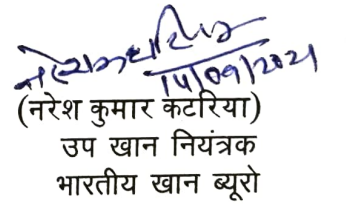 14/09/2021
(नरेश कुमार कटारिया)
उप खान नियंत्रक
भारतीय खान ब्यूरो